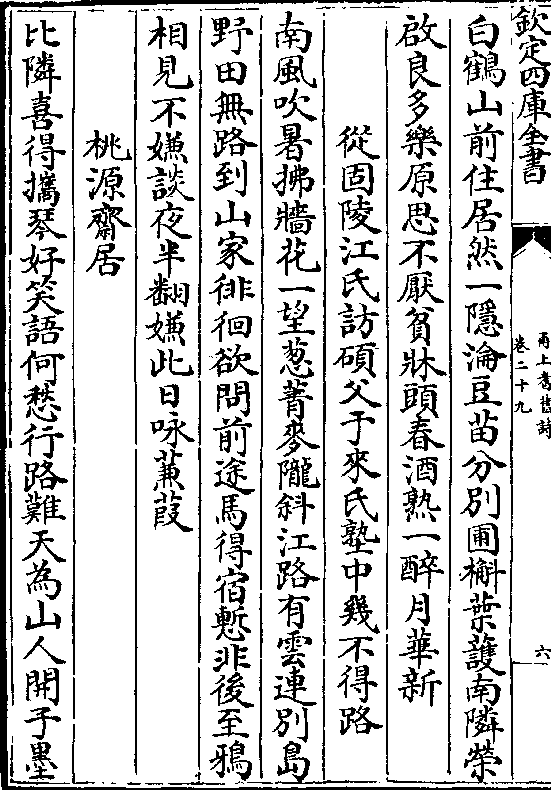 欽定四庫全書
甬上耆舊詩
卷二十九
六
白鶴山前住居然一隱淪豆苗分別圃槲葉護南隣榮
啟良多樂原思不厭貧牀頭春酒熟一醉月華新
從固陵江氏訪碩父于來氏塾中幾不得路
南風吹暑拂牆花一望葱菁麥隴斜江路有雲連別島
野田無路到山家徘徊欲問前途馬得宿慙非後至鴉
相見不嫌談夜半翻嫌此日咏蒹葭
桃源齋居
比隣喜得攜琴好笑語何愁行路難天為山人開子墨